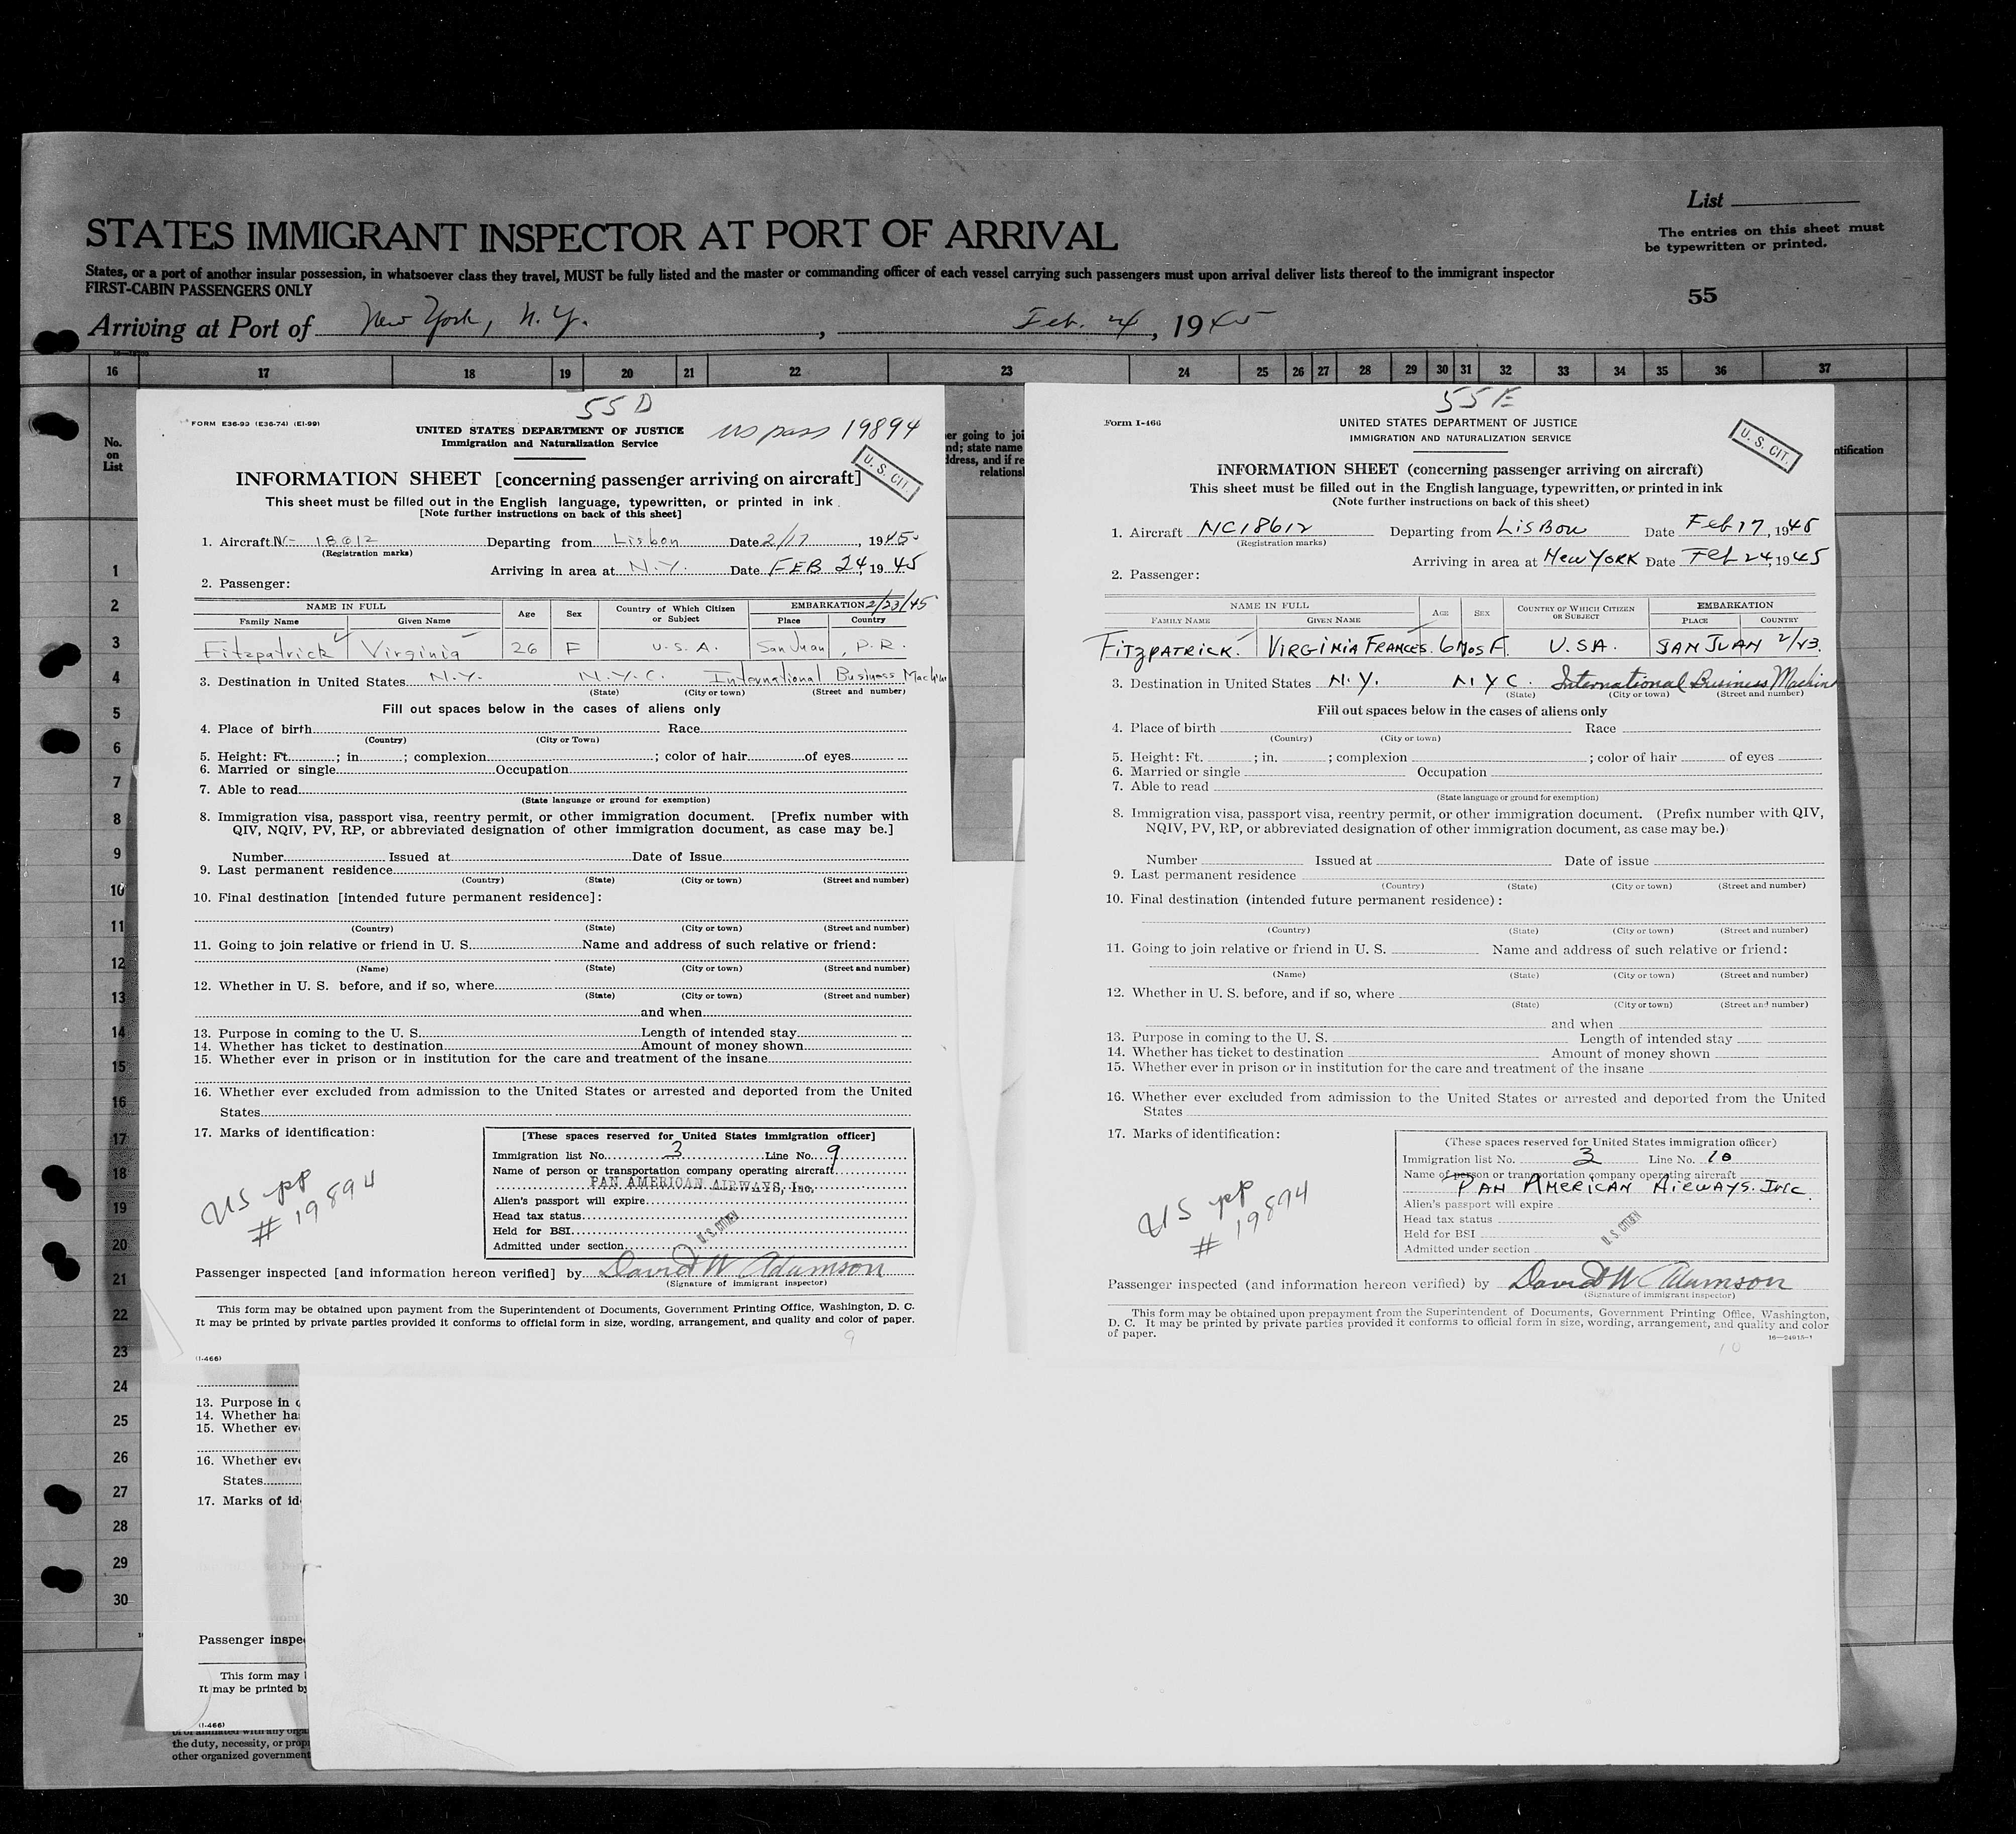 List
The entries on this sheet must
be typewritten or printed.
55
STATES IMMIGRANT INSPECTOR AT PORT OF ARRIVAL
States, or a port of another insular possession, in whatsoever class they travel, MUST be fully listed and the master or commanding officer of each vessel carrying such passengers must upon arrival deliver lists thereof to the immigrant inspector
FIRST-CABIN PASSENGERS ONLY
Arriving at Port of New York, N.Y. , Feb. 24, 1945
16 17 18 19 20 21 22 23 24 25 26 27 28 29 30 31 32 33 34 35 36 37
No.
on
List
1
2
3
4
5
6
7
8
9
10
11
12
13
14
15
16
17
18
19
20
21
22
23
24
25
26
27
28
29
30
er going to joi
nd; state name
ddress, and if re
relations
ntification
55 D
FORM E36-99 (E36-74) (EI-99)
UNITED STATES DEPARTMENT OF JUSTICE
Immigration and Naturalization Service
US pass 19894
U. S. CIT.
INFORMATION SHEET [concerning passenger arriving on aircraft]
This sheet must be filled out in the English language, typewritten, or printed in ink
[Note further instructions on back of this sheet]
1. Aircraft NC 18612 Departing from Lisbon Date 2/17, 1945
(Registration marks)
Arriving in area at N.Y. Date FEB 24, 1945
2. Passenger:
NAME IN FULL Age Sex Country of Which Citizen or Subject EMBARKATION 2/23/45
Family Name Given Name Place Country
Fitzpatrick Virginia 26 F U.S.A. San Juan, P.R.
3. Destination in United States N.Y. N.Y.C. International Business Machine
(State) (City or town) (Street and number)
Fill out spaces below in the cases of aliens only
4. Place of birth Race
(Country) (City or Town)
5. Height: Ft. ; in. ; complexion ; color of hair of eyes
6. Married or single Occupation
7. Able to read
(State language or ground for exemption)
8. Immigration visa, passport visa, reentry permit, or other immigration document. [Prefix number with
QIV, NQIV, PV, RP, or abbreviated designation of other immigration document, as case may be.]
Number Issued at Date of Issue
9. Last permanent residence
(Country) (State) (City or town) (Street and number)
10. Final destination [intended future permanent residence]:
(Country) (State) (City or town) (Street and number)
11. Going to join relative or friend in U. S. Name and address of such relative or friend:
(Name) (State) (City or town) (Street and number)
12. Whether in U. S. before, and if so, where
(State) (City or town) (Street and number)
and when
13. Purpose in coming to the U. S. Length of intended stay
14. Whether has ticket to destination Amount of money shown
15. Whether ever in prison or in institution for the care and treatment of the insane
16. Whether ever excluded from admission to the United States or arrested and deported from the United
States
17. Marks of identification:
US pp
# 19894
[These spaces reserved for United States immigration officer]
Immigration list No. 3 Line No. 9
Name of person or transportation company operating aircraft
PAN AMERICAN AIRWAYS, Inc.
Alien's passport will expire
Head tax status
Held for BSI
Admitted under section
U. S. CITIZEN
Passenger inspected [and information hereon verified] by David W Adamson
(Signature of immigrant inspector)
This form may be obtained upon payment from the Superintendent of Documents, Government Printing Office, Washington, D. C.
It may be printed by private parties provided it conforms to official form in size, wording, arrangement, and quality and color of paper.
9
(I-466)
13. Purpose in c
14. Whether ha
15. Whether ev
16. Whether eve
States
17. Marks of id
Passenger inspe
This form may
It may be printed by
(I-466)
or of affiliated with any orga
the duty, necessity, or prop
other organized government
55 E
Form I-466
UNITED STATES DEPARTMENT OF JUSTICE
IMMIGRATION AND NATURALIZATION SERVICE
U. S. CIT.
INFORMATION SHEET (concerning passenger arriving on aircraft)
This sheet must be filled out in the English language, typewritten, or printed in ink
(Note further instructions on back of this sheet)
1. Aircraft NC18612 Departing from LisBon Date Feb 17, 1945
(Registration marks)
Arriving in area at New YORK Date Feb 24, 1945
2. Passenger:
NAME IN FULL AGE SEX COUNTRY OF WHICH CITIZEN OR SUBJECT EMBARKATION
FAMILY NAME GIVEN NAME PLACE COUNTRY
FITZPATRICK. VIRGINIA FRANCES. 6 Mos F. U.S.A. SAN JUAN 2/23.
3. Destination in United States N.Y. N Y C. International Business Machine
(State) (City or town) (Street and number)
Fill out spaces below in the cases of aliens only
4. Place of birth Race
(Country) (City or town)
5. Height: Ft. ; in. ; complexion ; color of hair of eyes
6. Married or single Occupation
7. Able to read
(State language or ground for exemption)
8. Immigration visa, passport visa, reentry permit, or other immigration document. (Prefix number with QIV,
NQIV, PV, RP, or abbreviated designation of other immigration document, as case may be.)
Number Issued at Date of issue
9. Last permanent residence
(Country) (State) (City or town) (Street and number)
10. Final destination (intended future permanent residence):
(Country) (State) (City or town) (Street and number)
11. Going to join relative or friend in U. S. Name and address of such relative or friend:
(Name) (State) (City or town) (Street and number)
12. Whether in U. S. before, and if so, where
(State) (City or town) (Street and number)
and when
13. Purpose in coming to the U. S. Length of intended stay
14. Whether has ticket to destination Amount of money shown
15. Whether ever in prison or in institution for the care and treatment of the insane
16. Whether ever excluded from admission to the United States or arrested and deported from the United
States
17. Marks of identification:
US pp
# 19894
(These spaces reserved for United States immigration officer)
Immigration list No. 3 Line No. 10
Name of person or transportation company operating aircraft
PAN AMERICAN AIRWAYS. INC.
Alien's passport will expire
Head tax status
Held for BSI
Admitted under section
U. S. CITIZEN
Passenger inspected (and information hereon verified) by David W Adamson
(Signature of immigrant inspector)
This form may be obtained upon prepayment from the Superintendent of Documents, Government Printing Office, Washington,
D. C. It may be printed by private parties provided it conforms to official form in size, wording, arrangement, and quality and color
of paper.
16—24915-1
10